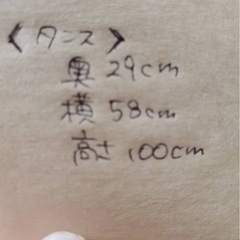 〈タンス〉
奥 29cm
横 58cm
高さ 100cm